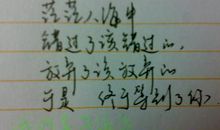 茫茫人海中
错过了该错过的
放弃了该放弃的
于是 终于等到了你